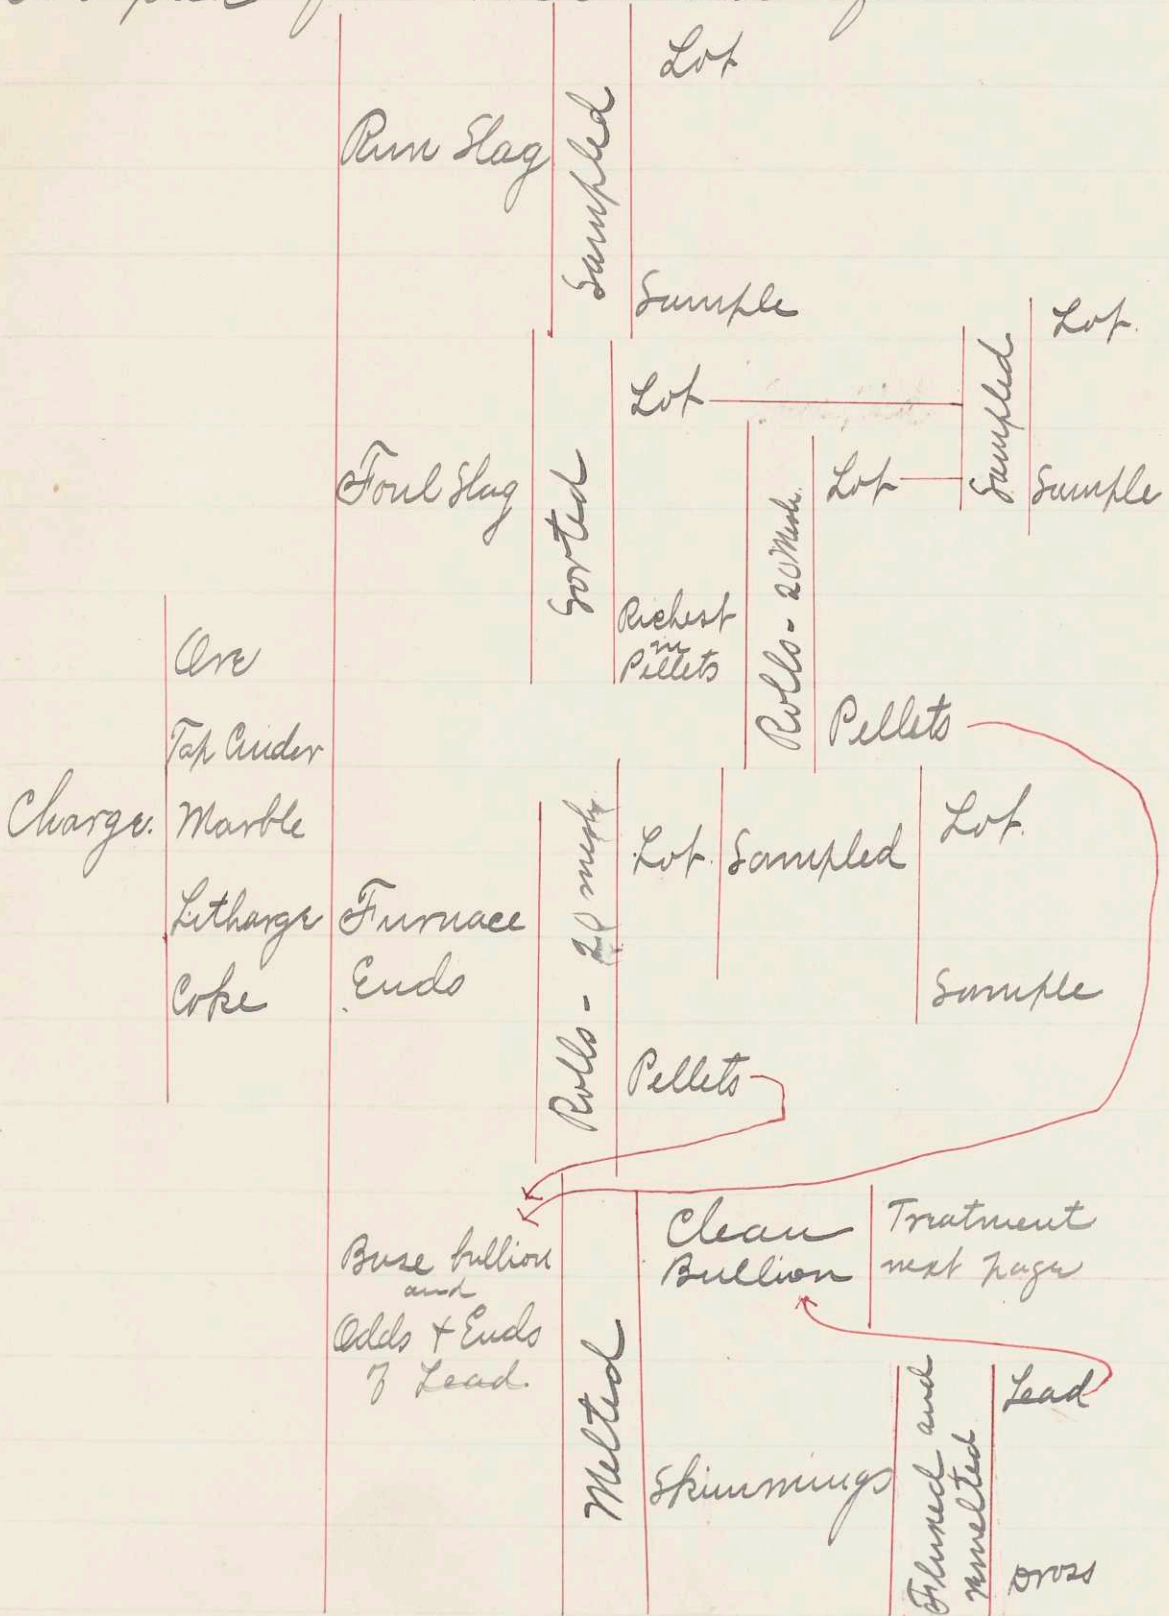 Charge.
Ore
Tap Cinder
Marble
Litharge
Coke
Run Slag
Sampled
Lot
Sample
Foul Slag
Sorted
Lot
Richest
in
Pellets
Rolls - 20 Mesh.
Lot
Pellets
Sampled
Lot.
Sample
Furnace
Ends
Rolls - 20 mesh
Lot.
Sampled
Lot.
Sample
Pellets
Base bullion
and
Odds + Ends
of Lead.
Melted
Clean
Bullion
Treatment
next page
Skimmings
Fluxed and
remelted
Lead
Dross